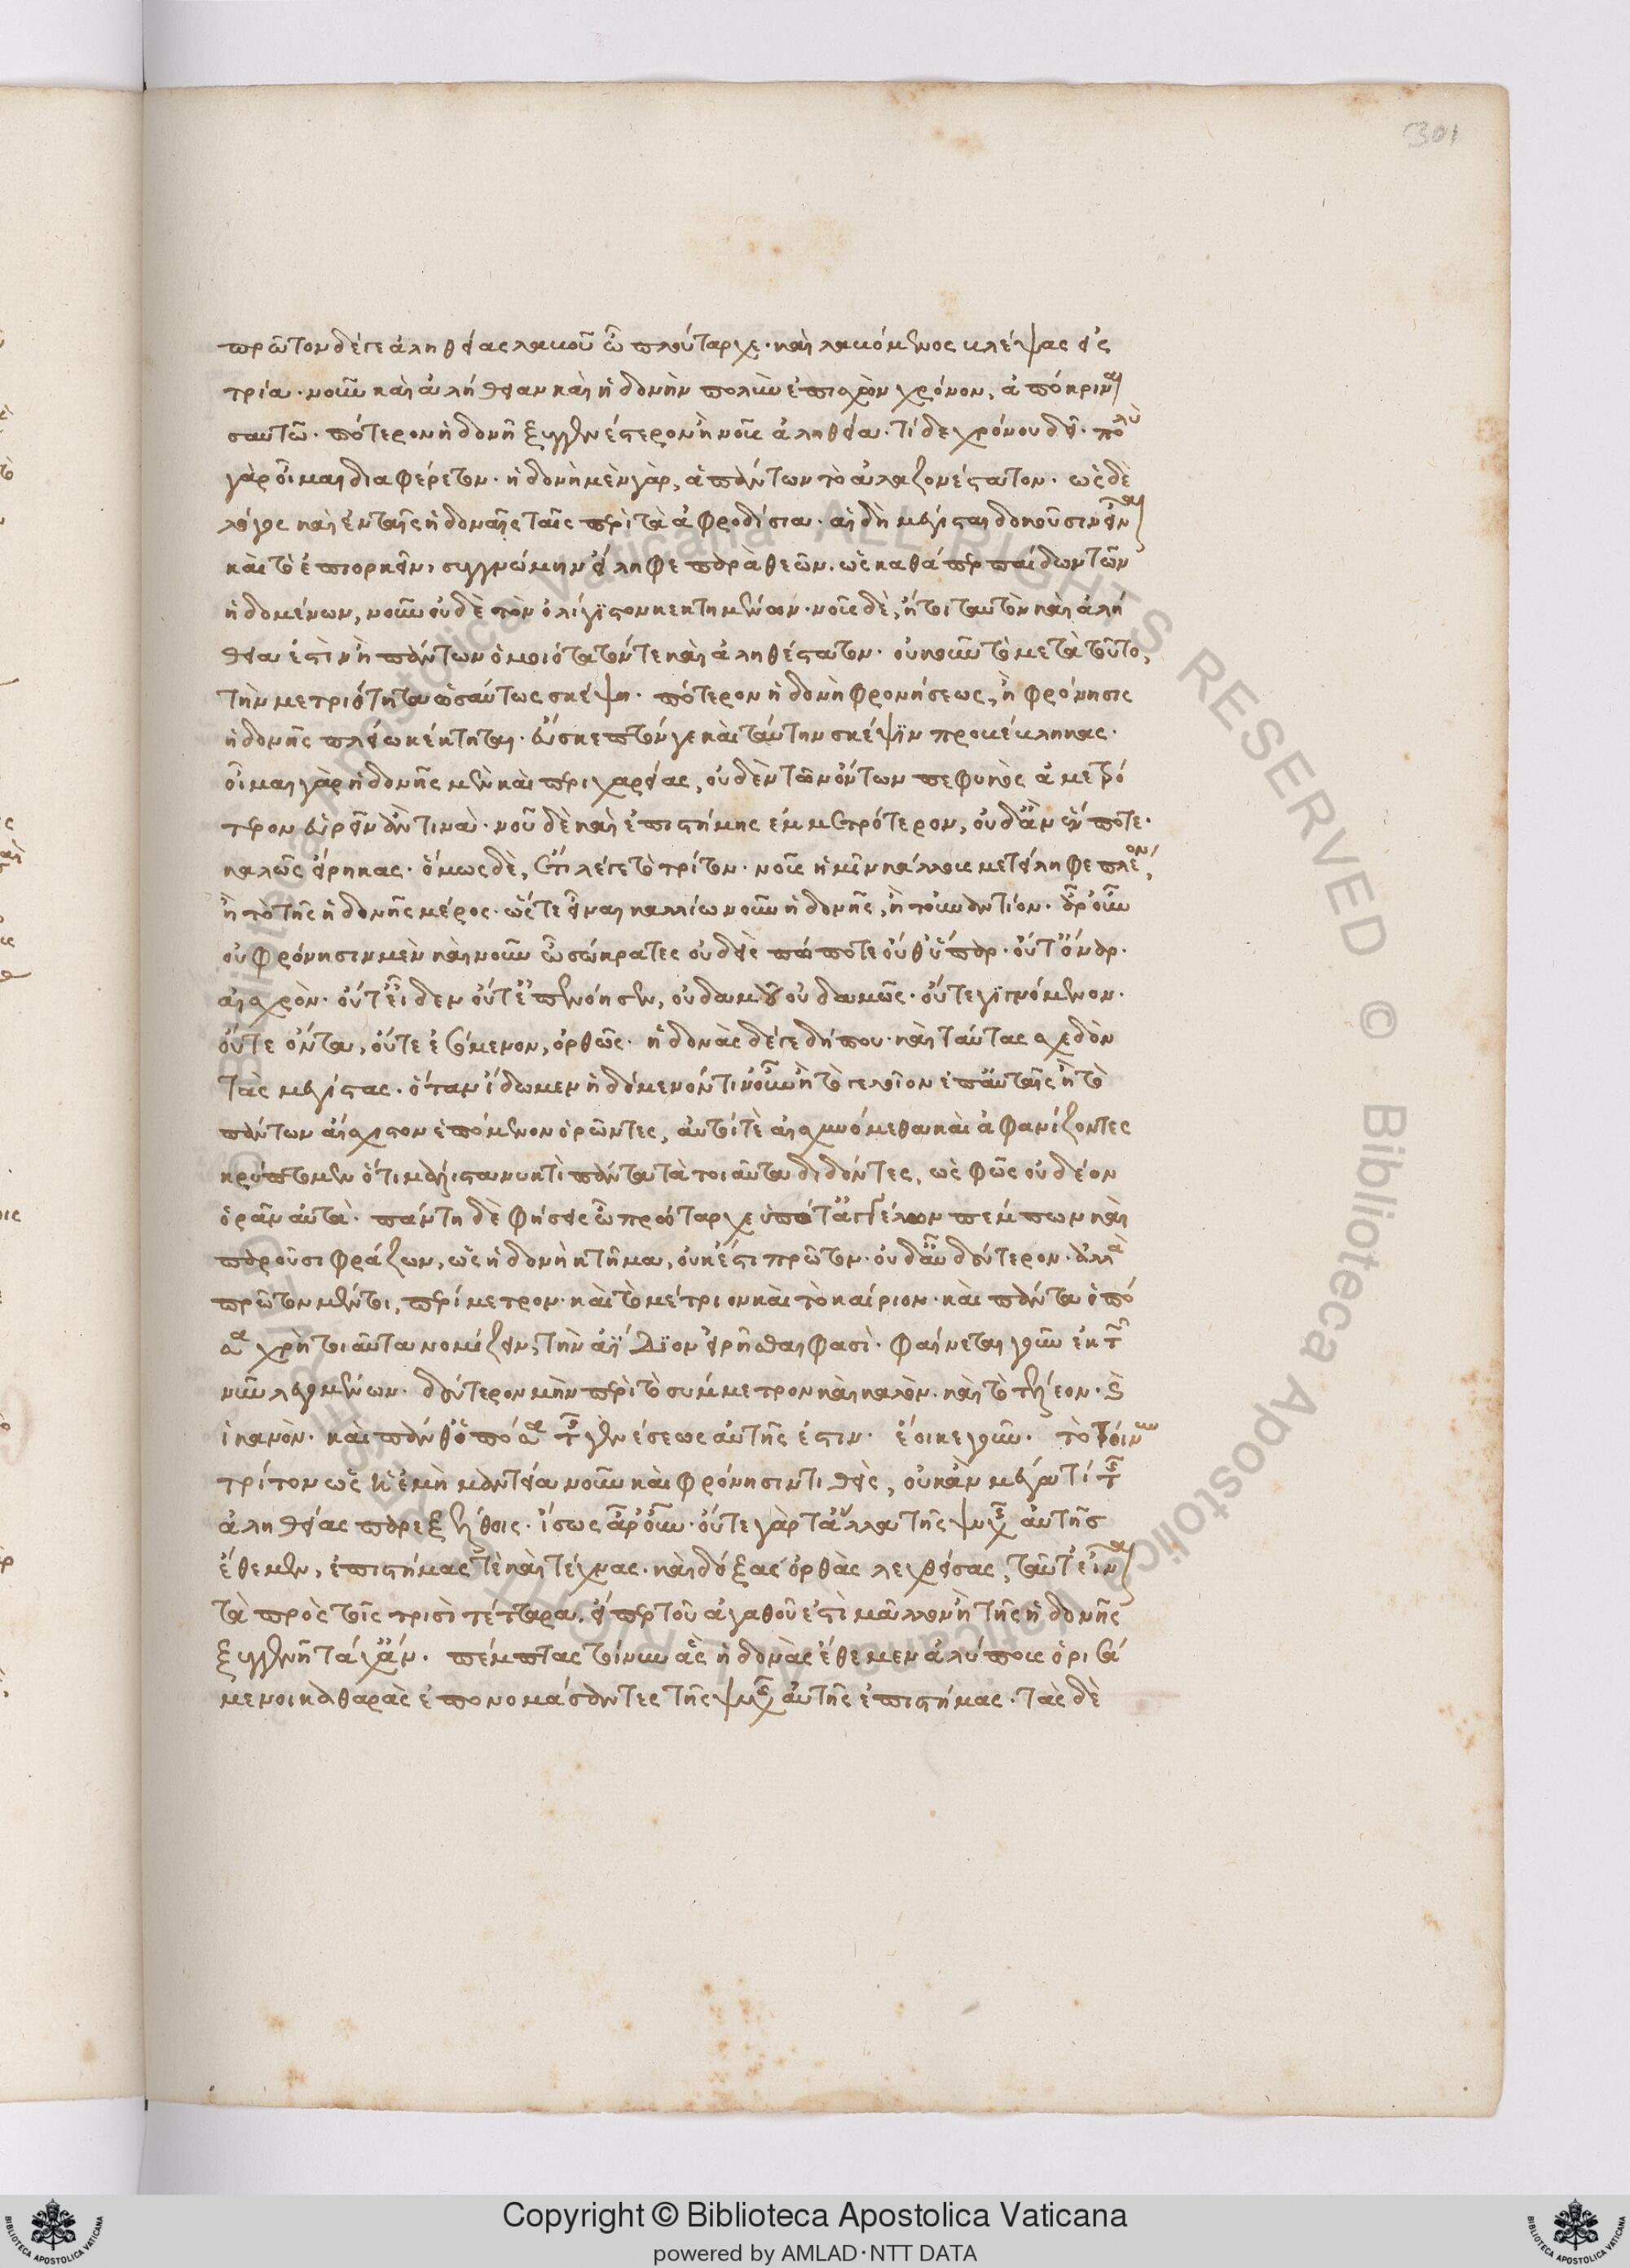 301
πρῶτον δέ γε ἀληθείας λαβοῦ ὦ πλούταρχε· καὶ λαβόμενος βλέψας εἰς
τρία· νοῦν καὶ ἀλήθειαν καὶ ἡδονὴν πολὺν ἐπισχὼν χρόνον, ἀπόκριναι
σαυτῶ· πότερον ἡδονὴ ξυγγενέστερον ἢ νοῦς ἀληθεία· τί δε χρόνου δεῖ· πολὺ
γὰρ οἶμαι διαφέρετον· ἡδονὴ μὲν γὰρ, ἁπάντων τὸ ἀλαζονέστατον· ὡς δὲ
λόγος καὶ ἐν ταῖς ἡδοναῖς ταῖς περὶ τὰ ἀφροδίσια· αἳ δὴ μέγισται δοκοῦσιν εἶναι
καὶ τὸ ἐπιορκεῖν, συγγνώμην εἴληφε παρὰ θεῶν. ὡς καθάπερ παίδων τῶν
ἡδομένων, νοῦν οὐδὲ τὸν ὀλίγιστον κεκτημένων· νοῦς δὲ, ἤτοι ταυτὸν καὶ ἀλή
θεια ἐστὶν ἢ πάντων ὁμοιότατόν τε καὶ ἀληθέστατον· οὐκοῦν τὸ μετὰ τοῦτο,
τὴν μετριότητα ὡσαύτως σκέψη· πότερον ἡδονὴ φρονήσεως, ἢ φρόνησις
ἡδονῆς πλείω κέκτηται· εὔσκεπτόν γε καὶ ταύτην σκέψϊν προβέβληκας·
οἶμαι γὰρ ἡδονῆς μὲν καὶ περιχαρείας, οὐδὲν τῶν ὄντων πεφυκὸς ἀμετρό
τερον εὑρεῖν ἄν τινα· νοῦ δὲ καὶ ἐπιστήμης ἐμμετρότερον, οὐδ' ἂν ἕν ποτε·
καλῶς εἴρηκας· ὅμως δὲ, ἔτι λέγε τὸ τρίτον· νοῦς ἡμῖν κάλλους μετείληφε πλεῖον,
ἢ τὸ τῆς ἡδονῆς μέρος· ὥστε εἶναι καλλίω νοῦν ἡδονῆς, ἢ τοὐναντίον· ἆρ' οὖν
οὐ φρόνησιν μὲν καὶ νοῦν ὦ σώκρατες οὐδεὶς πώποτε οὔθ' ὕπαρ· οὔτ' ὄναρ·
αἰσχρὸν· οὔτ' εἶδεν οὔτ' ἐπενόησεν, οὐδαμῆ οὐδαμῶς· οὔτε γϊγνόμενον·
οὔτε ὄντα, οὔτε ἐσόμενον, ὀρθῶς· ἡδονὰς δέ γε δήπου· καὶ ταύτας σχεδὸν
τὰς μεγίστας· ὅταν ἴδωμεν ἡδόμενον ὁντινοῦν ἢ τὸ γελοῖον ἐπ' αὐταῖς ἢ τὸ
πάντων αἴσχιστον ἑπόμενον ὁρῶντες, αὐτοί τε αἰσχυνόμεθα καὶ ἀφανίζοντες
κρύπτομεν ὅτι μάλιστα νυκτὶ πάντα τὰ τοιαῦτα διδόντες, ὡς φῶς οὐ δέον
ὁρᾶν αὐτὰ· πάντη δὲ φήσεις ὦ πρώταρχε ὑπό τ' ἀγγέλων πέμπων καὶ
παροῦσι φράζων, ὡς ἡδονὴ κτῆμα, οὐκ ἔστι πρῶτον· οὐδ' αὖ δεύτερον· ἀλλὰ
πρῶτον μέν τοι, περὶ μέτρον· καὶ τὸ μέτριον καὶ τὸ καίριον· καὶ πάντα ὁπό
σα χρὴ τοιαῦτα νομίζειν, τὴν ἀΐδϊον εἰρῆσθαι φασὶ· φαίνεται γοῦν ἐκ τῶν
νῦν λεγομένων· δεύτερον μὴν περὶ τὸ σύμμετρον καὶ καλὸν· καὶ τὸ τέλεον· καὶ
ἱκανὸν· καὶ πάνθ' ὁπόσα τῆς γενέσεως αὐτῆς ἐστιν· ἔοικε γοῦν· τὸ τοίνυν
τρίτον ὡς ἡ ἐμὴ μαντεία νοῦν καὶ φρόνησιν τιθεὶς, οὐκ ἂν μέγα τί τῆς
ἀληθείας παρεξέλθοις· ἴσως ἆρ' οὖν· οὔτε γὰρ τἄλλα τῆς ψυχῆς αὐτῆς
ἔθεμεν, ἐπιστήμας τὲ καὶ τέχνας· καὶ δόξας ὀρθὰς λεχθείσας, ταῦτ' εἶναι
τὰ πρὸς τοῖς τρισὶ τέτταρα, εἴπερ τοῦ ἀγαθοῦ ἐστὶ μᾶλλον ἢ τῆς ἡδονῆς
ξυγγενῆ τάχ' ἄν· πέμπτας τοίνυν ἃς ἡδονὰς ἔθεμεν ἀλύπους ὁρισά
μενοι καθαρὰς ἐπονομάσαντες τῆς ψυχῆς αὐτῆς ἐπιστήμας· τὰς δὲ
Copyright © Biblioteca Apostolica Vaticana
powered by AMLAD·NTT DATA